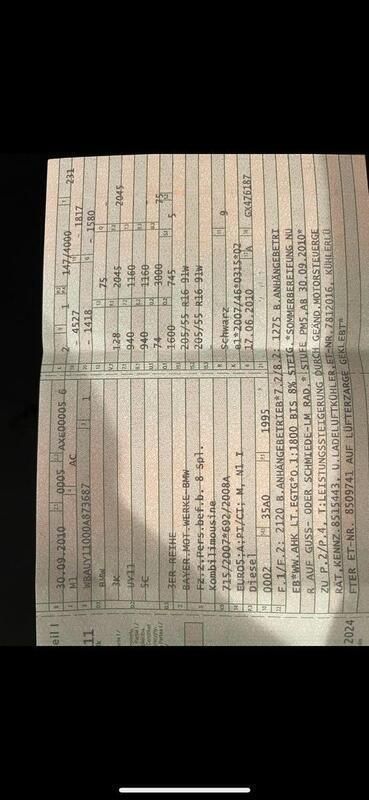 eil I
30.09.2010 0005 AXE00005 6
M1 AC
WBAUY11000A873687 1
BMW
3K
UY11
5C
3ER REIHE
BAYER.MOT.WERKE-BMW
Fz.z.Pers.bef.b. 8 Spl.
Kombilimousine
715/2007*692/2008A
EURO5;A:PI/CI; M, N1 I
Diesel
0002 35A0 1995
2 1 147/4000 231
4527 - 1817
- 1418 - 1580
128 75
2045 2045
940 1160
940 1160
74 3000 75
1600 745 5
205/55 R16 91W
205/55 R16 91W
Schwarz 9
e1*2007/46*0315*02
17.06.2010 A GX476187
F.1/F.2: 2120 B.ANHÄNGEBETRIEB*7.2/8.2: 1275 B.ANHÄNGEBETRI
EB*WW.AHK LT.EGTG*O.1:1800 BIS 8% STEIG.*SOMMERBEREIFUNG NU
R AUF GUSS- ODER SCHMIEDE-LM RAD.*STUFE PM5,AB 30.09.2010*
ZU P.2/P.4, T:LEISTUNGSSTEIGERUNG DURCH GEÄND.MOTORSTEUERGE
RÄT,KENNZ.8515443, U.LADELUFTKÜHLER,ET-NR.7812016, KÜHLERLÜ
FTER ET-NR. 8509741 AUF LÜFTERZARGE GEKLEBT*
11
2024